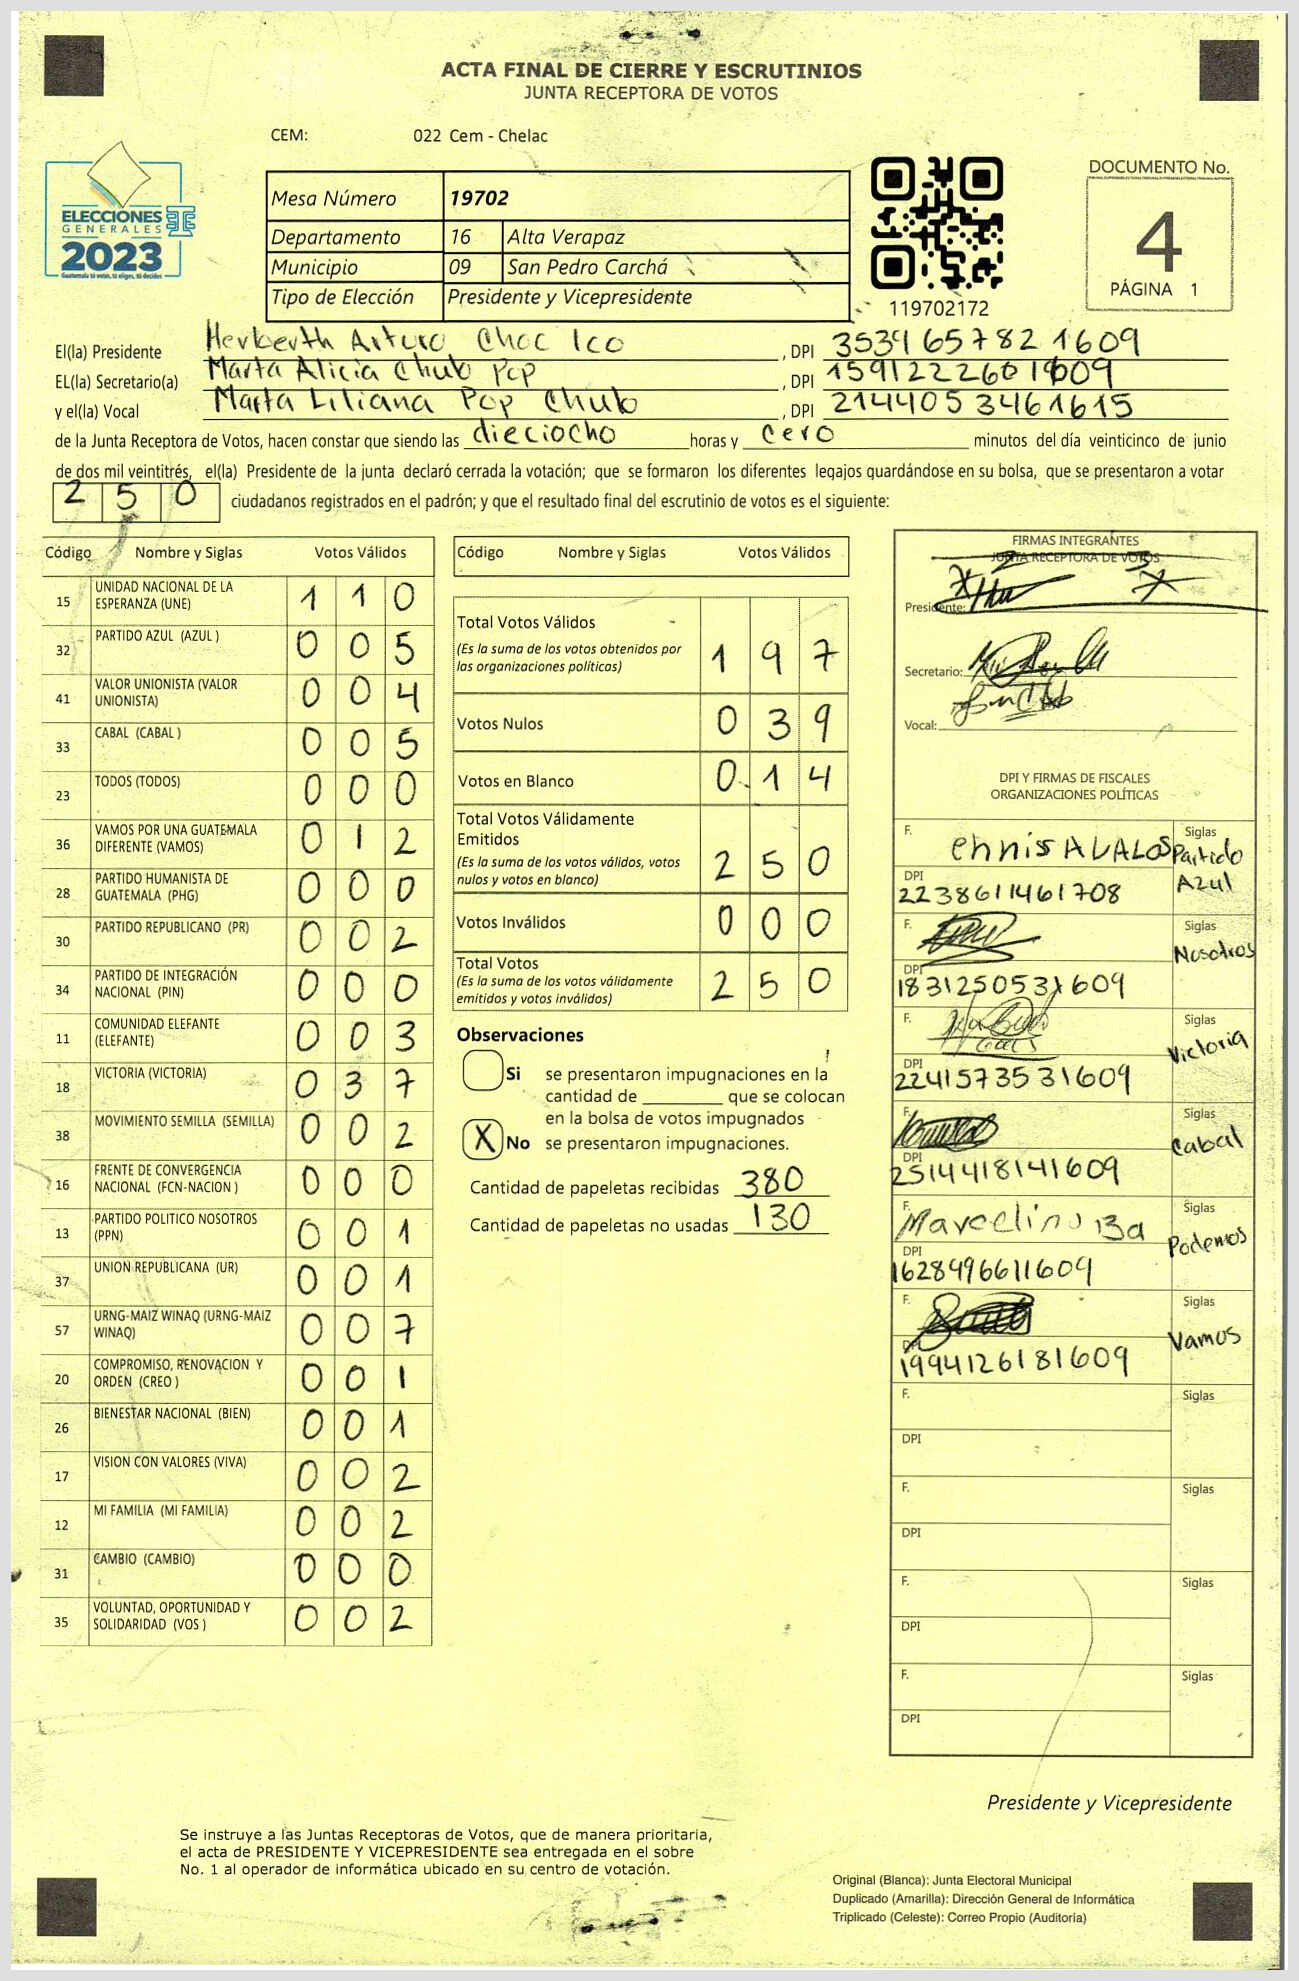 ACTA FINAL DE CIERRE Y ESCRUTINIOS
JUNTA RECEPTORA DE VOTOS
CEM: 022 Cem - Chelac
ELECCIONES
GENERALES
2023
Guatemala tú votas, tú eliges, tú decides
Mesa Número 19702
Departamento 16 Alta Verapaz
Municipio 09 San Pedro Carchá
Tipo de Elección Presidente y Vicepresidente
119702172
DOCUMENTO No.
4
PÁGINA 1
El(la) Presidente Herberth Arturo Choc Ico , DPI 3534657821609
EL(la) Secretario(a) Marta Alicia Chub Pop , DPI 1591222601609
y el(la) Vocal Marta Liliana Pop Chub , DPI 2144053461615
de la Junta Receptora de Votos, hacen constar que siendo las dieciocho horas y cero minutos del día veinticinco de junio
de dos mil veintitrés, el(la) Presidente de la junta declaró cerrada la votación; que se formaron los diferentes legajos guardándose en su bolsa, que se presentaron a votar
250 ciudadanos registrados en el padrón; y que el resultado final del escrutinio de votos es el siguiente:
Código Nombre y Siglas Votos Válidos
15 UNIDAD NACIONAL DE LA ESPERANZA (UNE) 1 1 0
32 PARTIDO AZUL (AZUL ) 0 0 5
41 VALOR UNIONISTA (VALOR UNIONISTA) 0 0 4
33 CABAL (CABAL ) 0 0 5
23 TODOS (TODOS) 0 0 0
36 VAMOS POR UNA GUATEMALA DIFERENTE (VAMOS) 0 1 2
28 PARTIDO HUMANISTA DE GUATEMALA (PHG) 0 0 0
30 PARTIDO REPUBLICANO (PR) 0 0 2
34 PARTIDO DE INTEGRACIÓN NACIONAL (PIN) 0 0 0
11 COMUNIDAD ELEFANTE (ELEFANTE) 0 0 3
18 VICTORIA (VICTORIA) 0 3 7
38 MOVIMIENTO SEMILLA (SEMILLA) 0 0 2
16 FRENTE DE CONVERGENCIA NACIONAL (FCN-NACION ) 0 0 0
13 PARTIDO POLITICO NOSOTROS (PPN) 0 0 1
37 UNION REPUBLICANA (UR) 0 0 1
57 URNG-MAIZ WINAQ (URNG-MAIZ WINAQ) 0 0 7
20 COMPROMISO, RENOVACION Y ORDEN (CREO ) 0 0 1
26 BIENESTAR NACIONAL (BIEN) 0 0 1
17 VISION CON VALORES (VIVA) 0 0 2
12 MI FAMILIA (MI FAMILIA) 0 0 2
31 CAMBIO (CAMBIO) 0 0 0
35 VOLUNTAD, OPORTUNIDAD Y SOLIDARIDAD (VOS ) 0 0 2
Código Nombre y Siglas Votos Válidos
Total Votos Válidos
(Es la suma de los votos obtenidos por
las organizaciones políticas) 1 9 7
Votos Nulos 0 3 9
Votos en Blanco 0 1 4
Total Votos Válidamente
Emitidos
(Es la suma de los votos válidos, votos
nulos y votos en blanco) 2 5 0
Votos Inválidos 0 0 0
Total Votos
(Es la suma de los votos válidamente
emitidos y votos inválidos) 2 5 0
Observaciones
Si se presentaron impugnaciones en la
cantidad de ________ que se colocan
en la bolsa de votos impugnados
X No se presentaron impugnaciones.
Cantidad de papeletas recibidas 380
Cantidad de papeletas no usadas 130
FIRMAS INTEGRANTES
JUNTA RECEPTORA DE VOTOS
Presidente:
Secretario:
Vocal:
DPI Y FIRMAS DE FISCALES
ORGANIZACIONES POLÍTICAS
F. ehnis AVALOS Siglas Partido
DPI 2238611461708 Azul
F. Siglas Nosotros
DPI 1831250531609
F. Siglas Victoria
DPI 2241573531609
F. Siglas Cabal
DPI 2514418141609
F. Marcelino Ba Siglas Podemos
DPI 1628496611609
F. Siglas Vamos
DPI 1994126181609
F. Siglas
DPI
F. Siglas
DPI
F. Siglas
DPI
F. Siglas
DPI
Presidente y Vicepresidente
Se instruye a las Juntas Receptoras de Votos, que de manera prioritaria,
el acta de PRESIDENTE Y VICEPRESIDENTE sea entregada en el sobre
No. 1 al operador de informática ubicado en su centro de votación.
Original (Blanca): Junta Electoral Municipal
Duplicado (Amarilla): Dirección General de Informática
Triplicado (Celeste): Correo Propio (Auditoría)